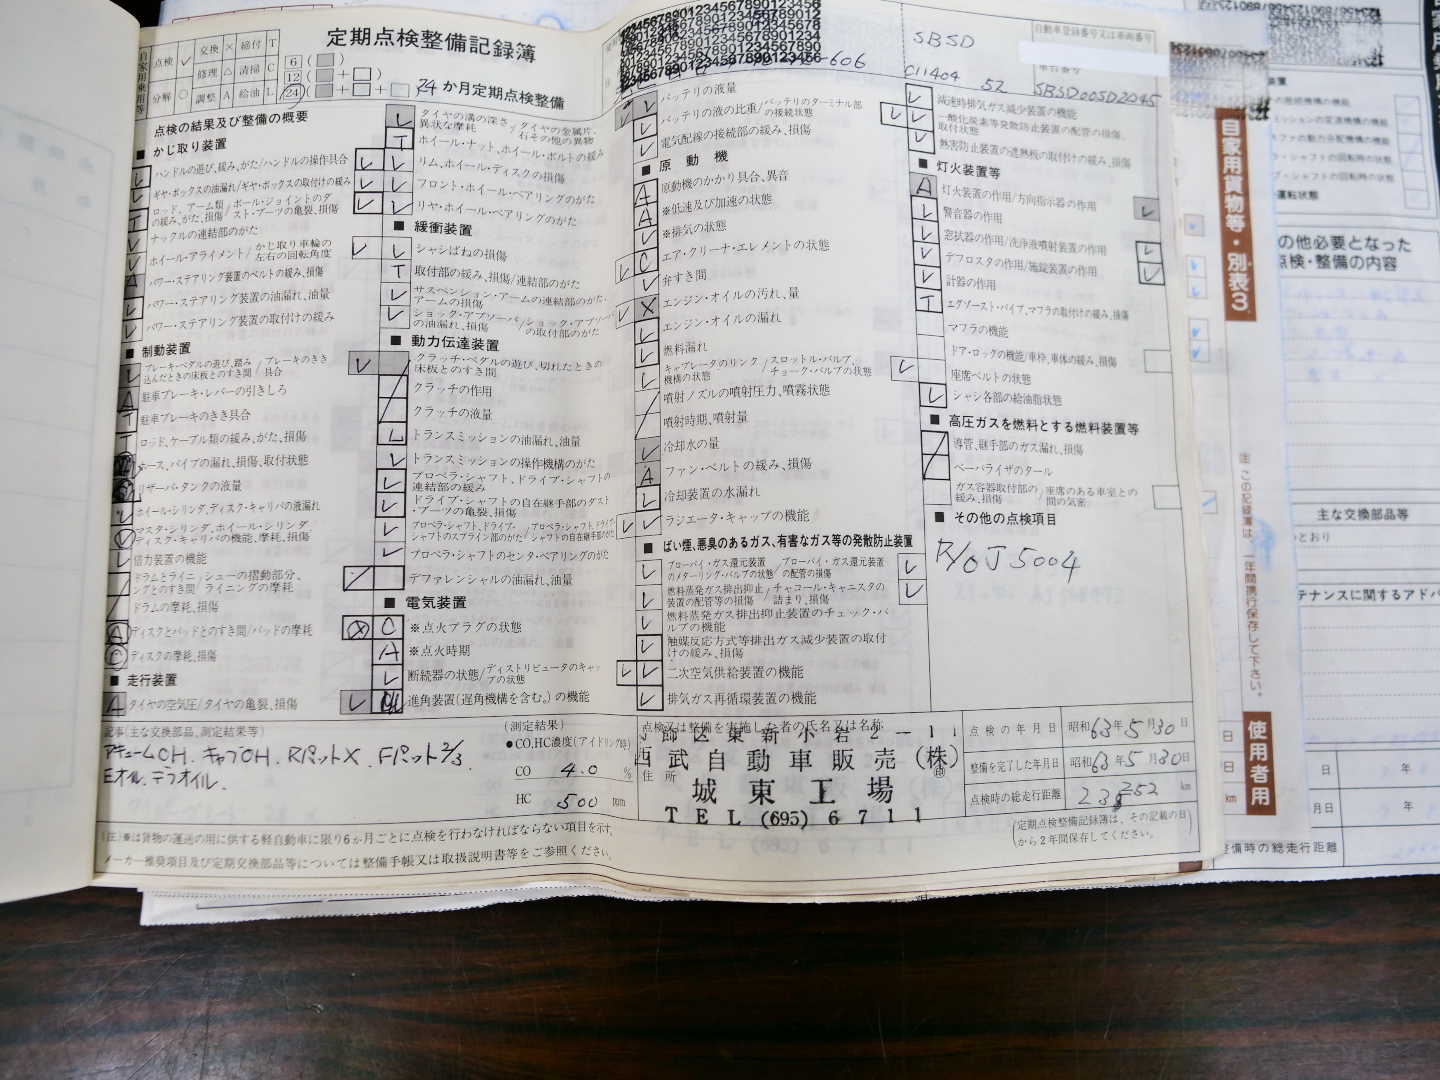 定期点検整備記録簿
自家用乗用等
点検 ✓ 交換 × 締付 T
修理 △ 清掃 C
分解 ○ 調整 A 給油 L
6
12
24
24 か月定期点検整備
-606
SBSD
C11404 52
自動車登録番号又は車両番号
車台番号
SBSD005D2045
点検の結果及び整備の概要
■ かじ取り装置
ハンドルの遊び、緩み、がた/ハンドルの操作具合
ギヤ・ボックスの油漏れ/ギヤ・ボックスの取付けの緩み
ロッド、アーム類の緩み、がた、損傷/ボール・ジョイントのダスト・ブーツの亀裂、損傷
ナックルの連結部のがた
ホイール・アライメント/かじ取り車輪の左右の回転角度
パワー・ステアリング装置のベルトの緩み、損傷
パワー・ステアリング装置の油漏れ、油量
パワー・ステアリング装置の取付けの緩み
■ 制動装置
ブレーキ・ペダルの遊び、踏み込んだときの床板とのすき間/ブレーキのきき具合
駐車ブレーキ・レバーの引きしろ
駐車ブレーキのきき具合
ロッド、ケーブル類の緩み、がた、損傷
ホース、パイプの漏れ、損傷、取付状態
リザーバ・タンクの液量
ホイール・シリンダ、ディスク・キャリパの液漏れ
マスタ・シリンダ、ホイール・シリンダ、ディスク・キャリパの機能、摩耗、損傷
倍力装置の機能
ドラムとライニングとのすき間/シューの摺動部分、ライニングの摩耗
ドラムの摩耗、損傷
ディスクとパッドとのすき間/パッドの摩耗
ディスクの摩耗、損傷
■ 走行装置
タイヤの空気圧/タイヤの亀裂、損傷
タイヤの溝の深さ、異状な摩耗/タイヤの金属片、石その他の異物
ホイール・ナット、ホイール・ボルトの緩み
リム、ホイール・ディスクの損傷
フロント・ホイール・ベアリングのがた
リヤ・ホイール・ベアリングのがた
■ 緩衝装置
シャシばねの損傷
取付部の緩み、損傷/連結部のがた
サスペンション・アームの連結部のがた、アームの損傷
ショック・アブソーバの油漏れ、損傷/ショック・アブソーバの取付部のがた
■ 動力伝達装置
クラッチ・ペダルの遊び、切れたときの床板とのすき間
クラッチの作用
クラッチの液量
トランスミッションの油漏れ、油量
トランスミッションの操作機構のがた
プロペラ・シャフト、ドライブ・シャフトの連結部の緩み
ドライブ・シャフトの自在継手部のダスト・ブーツの亀裂、損傷
プロペラ・シャフト、ドライブ・シャフトのスプライン部のがた/プロペラ・シャフト、ドライブ・シャフトの自在継手部のがた
プロペラ・シャフトのセンタ・ベアリングのがた
デファレンシャルの油漏れ、油量
■ 電気装置
※点火プラグの状態
※点火時期
断続器の状態/ディストリビュータのキャップの状態
進角装置(遅角機構を含む。)の機能
バッテリの液量
バッテリの液の比重/バッテリのターミナル部の接続状態
電気配線の接続部の緩み、損傷
■ 原動機
原動機のかかり具合、異音
※低速及び加速の状態
※排気の状態
エア・クリーナ・エレメントの状態
弁すき間
エンジン・オイルの汚れ、量
エンジン・オイルの漏れ
燃料漏れ
キャブレータのリンク機構の状態/スロットル・バルブ、チョーク・バルブの状態
噴射ノズルの噴射圧力、噴霧状態
噴射時期、噴射量
冷却水の量
ファン・ベルトの緩み、損傷
冷却装置の水漏れ
ラジエータ・キャップの機能
■ ばい煙、悪臭のあるガス、有害なガス等の発散防止装置
ブローバイ・ガス還元装置のメターリング・バルブの状態/ブローバイ・ガス還元装置の配管の損傷
燃料蒸発ガス排出抑止装置の配管等の損傷/チャコール・キャニスタの詰まり、損傷
燃料蒸発ガス排出抑止装置のチェック・バルブの機能
触媒反応方式等排出ガス減少装置の取付けの緩み、損傷
二次空気供給装置の機能
排気ガス再循環装置の機能
減速時排気ガス減少装置の機能
一酸化炭素等発散防止装置の配管の損傷、取付状態
熱害防止装置の遮熱板の取付けの緩み、損傷
■ 灯火装置等
灯火装置の作用/方向指示器の作用
警音器の作用
窓拭器の作用/洗浄液噴射装置の作用
デフロスタの作用/施錠装置の作用
計器の作用
エグゾースト・パイプ、マフラの取付けの緩み、損傷
マフラの機能
ドア・ロックの機能/車枠、車体の緩み、損傷
座席ベルトの状態
シャシ各部の給油脂状態
■ 高圧ガスを燃料とする燃料装置等
導管、継手部のガス漏れ、損傷
ベーパライザのタール
ガス容器取付部の緩み、損傷/座席のある車室との間の気密
■ その他の点検項目
R/O J5004
記事(主な交換部品、測定結果等)
アキュームOH. キャブOH. RパットX. Fパット2/3.
Eオイル. デフオイル.
(測定結果)
●CO,HC濃度(アイドリング時)
CO 4.0 %
HC 500 ppm
点検又は整備を実施した者の氏名又は名称
住所
区東新小岩2-11
西武自動車販売(株)
城東工場
TEL (695) 6711
点検の年月日 昭和63年5月30日
整備を完了した年月日 昭和63年5月30日
点検時の総走行距離 km
(定期点検整備記録簿は、その記載の日から2年間保存してください。)
(注)※は貨物の運送の用に供する軽自動車に限り6か月ごとに点検を行わなければならない項目を示す。
メーカー推奨項目及び定期交換部品等については整備手帳又は取扱説明書等をご参照ください。
自家用貨物等・別表3.
注 この記録簿は、一年間携行保存して下さい。
使用者用
の他必要となった
点検・整備の内容
主な交換部品等
とおり
テナンスに関するアドバ
整備時の総走行距離